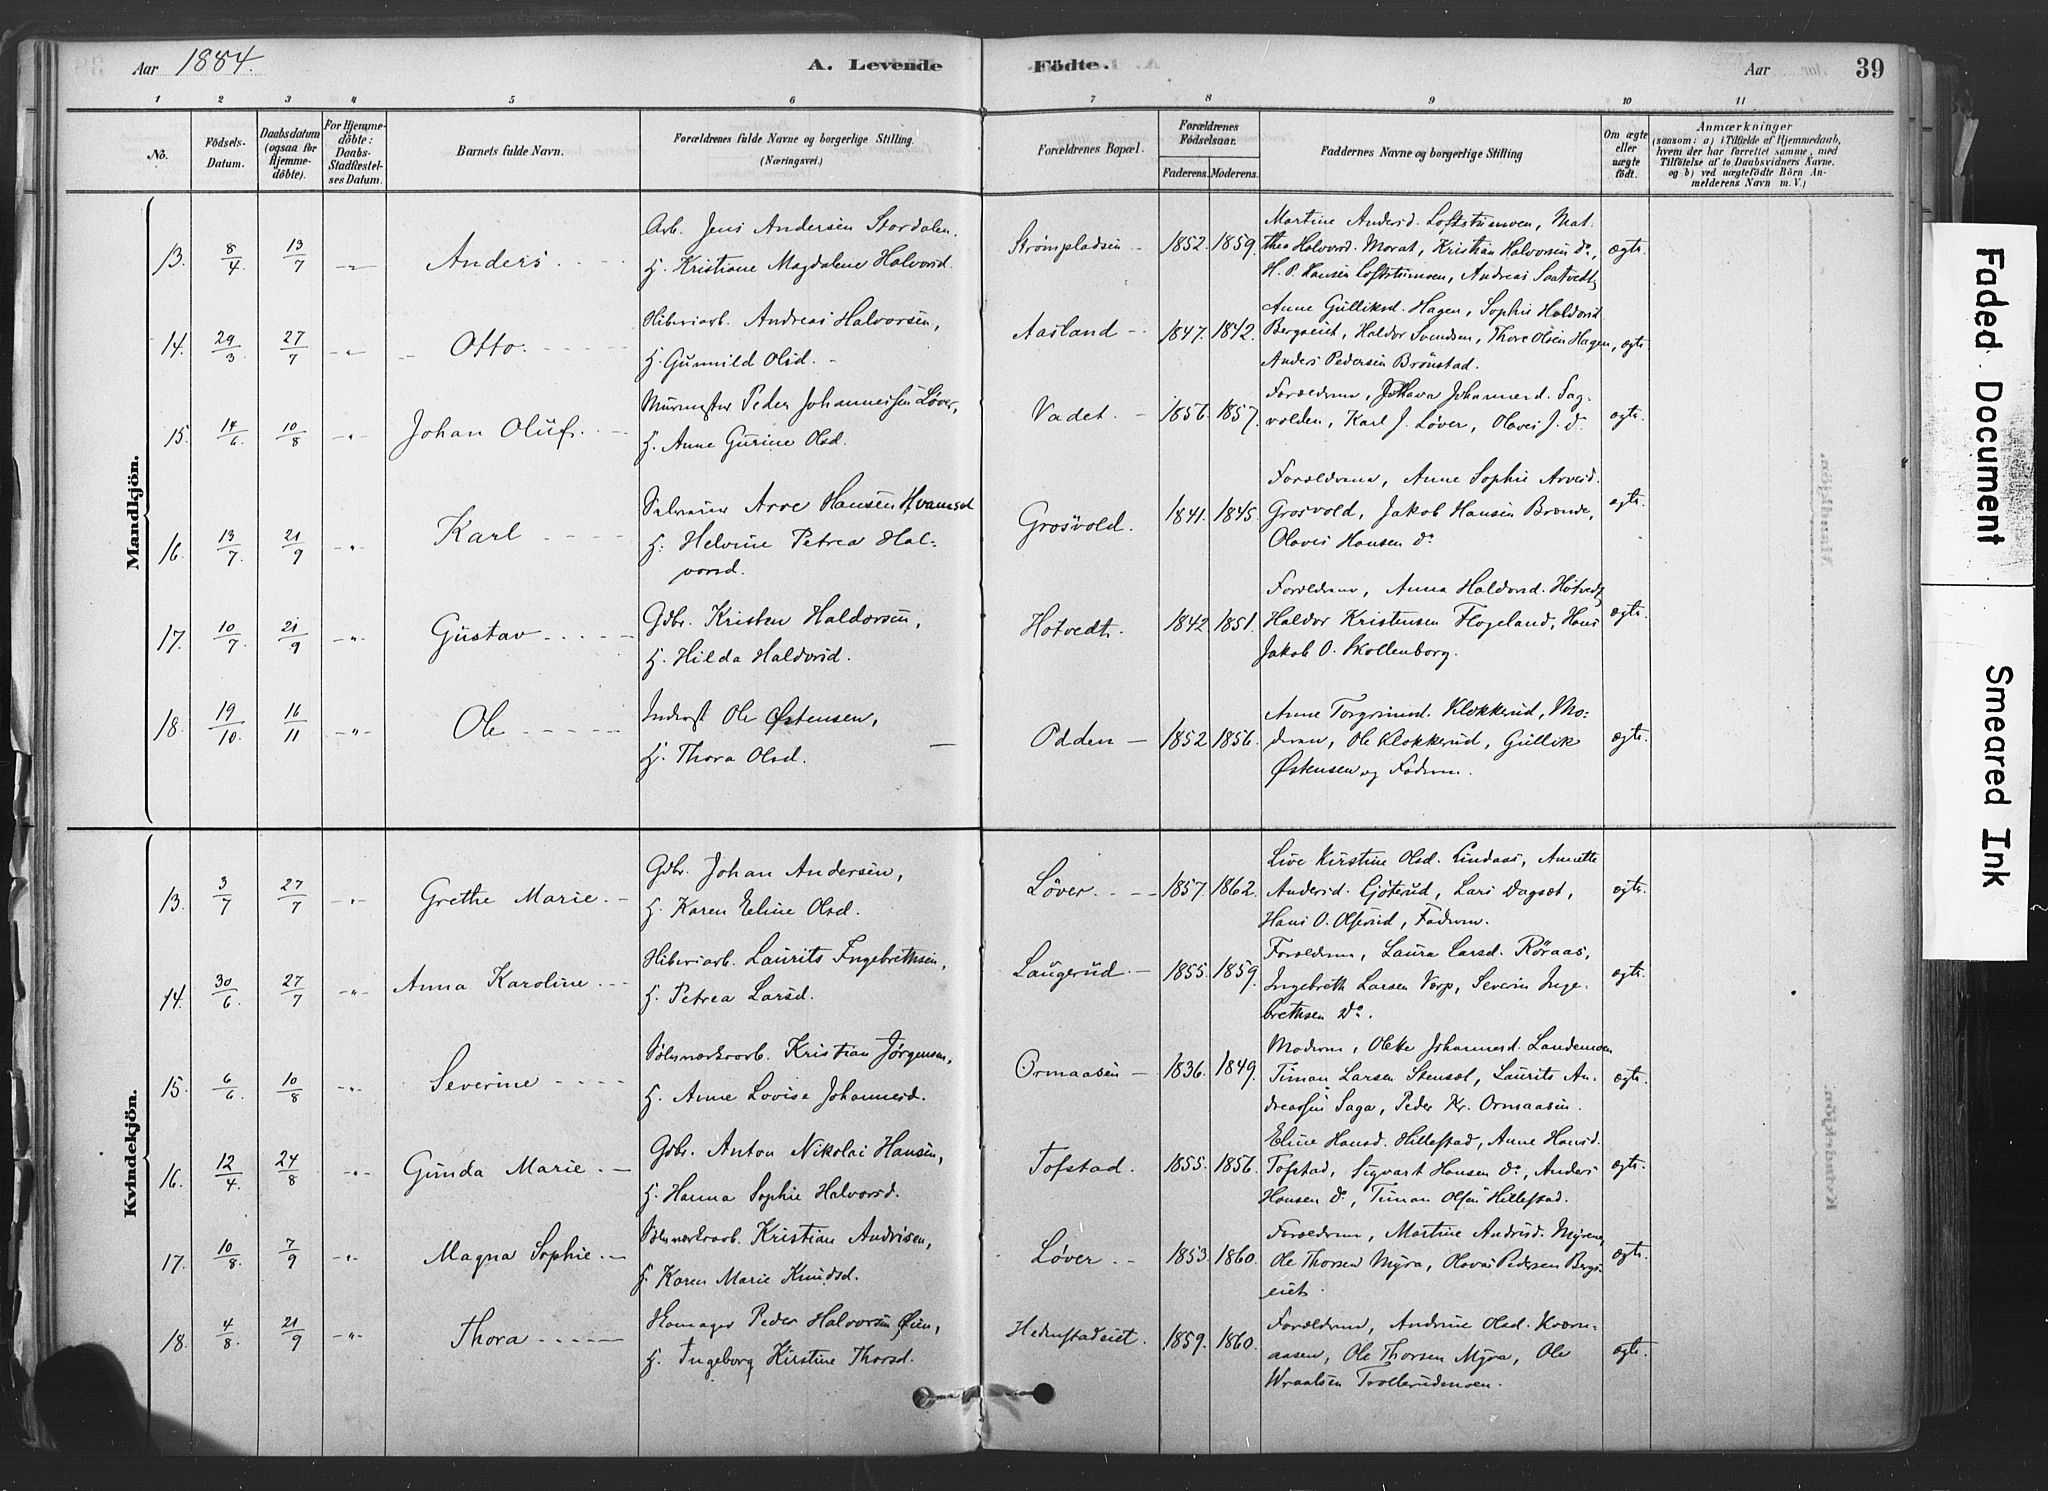 Aar 1884.
A. Levende
Födte.
Aar
39
1 2 3 4 5 6 7 8 9 10 11
No.
Födsels-
Datum.
Daabsdatum
(ogsaa for
Hjemme-
döbte).
For Hjemme-
döbte:
Daabs-
Stadfæstel-
ses Datum.
Barnets fulde Navn.
Forældrenes fulde Navne og borgerlige Stilling.
(Næringsvei.)
Forældrenes Bopæl.
Forældrenes
Födselsaar.
Faderens. Moderens.
Faddernes Navne og borgerlige Stilling
Om ægte
eller
uægte
födt.
Anmærkninger
(saasom: a) i Tilfælde af Hjemmedaab,
hvem der har forrettet samme, med
Tilföielse af to Daabsvidners Navne.
og b) ved uægtefödte Börn An-
melderens Navn m. V.)
Mandkjön.
13. 8/4 13/7 -"- Anders
Arb. Jens Andersen Stordalen.
H. Kristiane Magdalene Halvorsd.
Strømpladsen 1852. 1859.
Martine Andersd. Loftstumoen, Mat-
thea Halvorsd. Morat, Kristian Halvorsen do,
H. P. Hansen Loftstumoen, Andreas Saatvedt
ægte.
14. 29/3 27/7 -"- Otto.
Andreas Halvorsen,
H. Gunnild Olsd.
Aasland 1847. 1842.
Anne Gulliksd. Hagen, Sophie Haldorsd.
Bergseiet, Haldor Svendsen, Thore Olsen Hagen,
Anders Pedersen Brönstad.
ægte.
15. 14/6 10/8 -"- Johan Oluf.
Murmester Peder Johannessen Løver,
H. Anne Gurine Olsd.
Vadet. 1856. 1857.
Forældrene, Johannesd. Sag-
volden, Karl J. Løver, Olaves J. do
ægte.
16. 13/7 21/9 -"- Karl
Arve Hansen
H. Helvine Petrea Hal-
vorsd.
Grosvold. 1841. 1845.
Forældrene, Anne Sophie Arvesd.
Grosvold, Jakob Hansen
Olaves Hansen do
ægte.
17. 10/7 21/9 -"- Gustav
Gdbr. Kristen Haldorsen,
H. Hilda Haldorsd.
Hotvedt. 1842 1851.
Forældrene, Anna Haldorsd. Hotvedt,
Haldor Kristensen Flogeland, Hans
Jakob O. Skollenborg.
ægte.
18. 19/10 16/11 -"- Ole
Inderst Ole Østensen,
H. Thora Olsd.
Odden 1852 1856.
Anne Torgrimsd. Klokkerud, Mo-
deren, Ole Klokkerud, Gullik
Østensen og Faderen.
ægte.
Kvindekjön.
13. 3/7 27/7 -"- Grethe Marie.
Gdbr. Johan Andersen,
H. Karen Eline Olsd.
Løver. 1857. 1862.
Live Kirstine Olsd. Lindaas, Annette
Andersd. Gjöterud, Lars Dagsæt,
Hans O. Faderen.
ægte.
14. 30/6 27/7 -"- Anna Karoline
Laurits Ingebrethsen,
H. Petrea Larsd.
Laugerud. 1855. 1859.
Forældrene, Laura Larsd. Röraas,
Ingebreth Larsen Verp, Severin Inge-
brethsen Do.
ægte.
15. 6/6 10/8 -"- Severine
Sölvværksarb. Kristian Jørgensen,
H. Anne Lovise Johannesd.
Ormaasen 1836. 1849.
Moderen, Olette Johannesd. Landemoen
Timan Larsen Stensæt, Laurits An-
dreassen Saga, Peder Kr. Ormaasen.
ægte.
16. 12/4 24/8 -"- Gunda Marie.
Gdbr. Anton Nikolai Hansen,
H. Hanna Sophie Halvorsd.
Tofstad. 1855. 1856.
Eline Hansd. Hillestad, Anne Hansd.
Tofstad, Sigvart Hansen do, Anders
Hansen do, Timan Olsen Hillestad.
ægte.
17. 10/8 7/9 -"- Magna Sophie.
Sölvværksarb. Kristian Andrisen,
H. Karen Marie Knudsd.
Løver. 1853. 1860.
Forældrene, Martine Myrene,
Ole Thorsen Myra, Olaves Pedersen Bergs-
eiet.
ægte.
18. 4/8 21/9 -"- Thora
Skomager Peder Halvorsen Øien,
H. Ingeborg Kirstine Thorsd.
Hedenstadeiet. 1859. 1860.
Forældrene, Andrine Olsd. Kværn-
aasen, Ole Thorsen Myra, Ole
Wraalsen Trollerudmoen.
ægte.
Faded Document
Smeared Ink